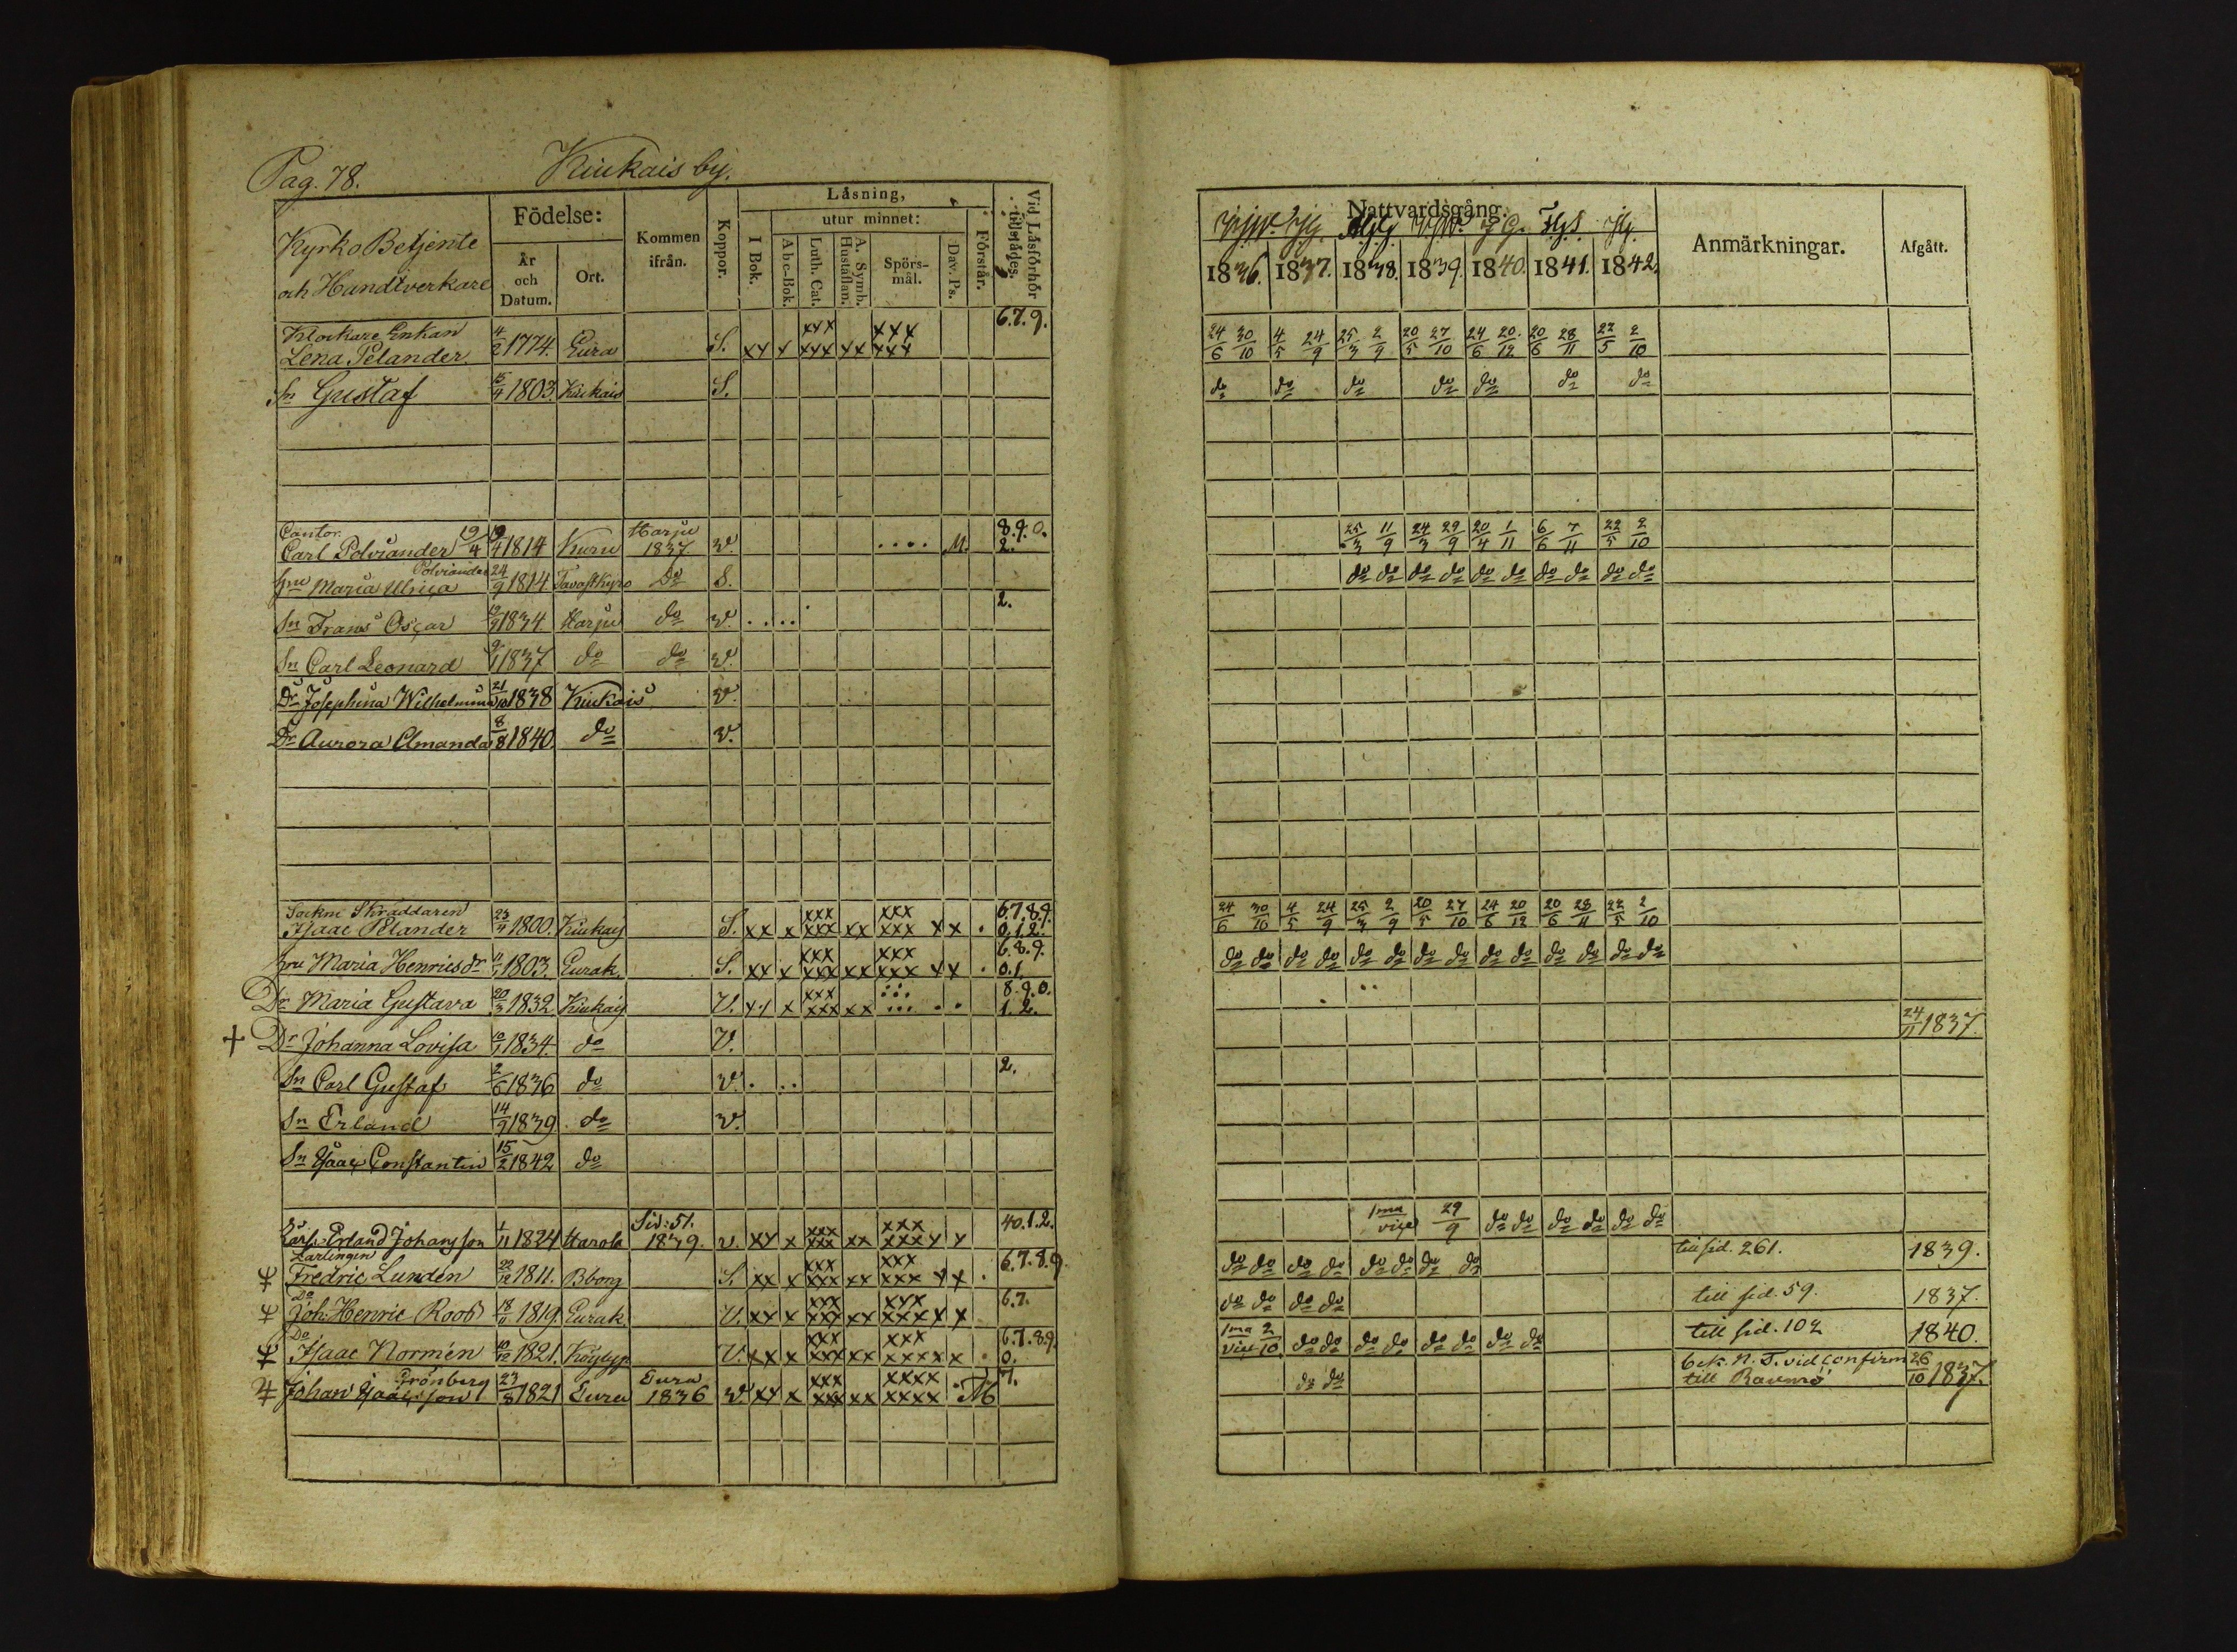 Pag. 78. Kiukais by.
Kyrko Betjente
och Handtverkare
Födelse:
År och Datum.
Ort.
Kommen ifrån.
Koppor.
Läsning,
I Bok.
utur minnet:
Abc-Bok.
Luth. Cat.
A. Symb. Hustaflan.
Spörs-mål.
Dav. Ps.
Förstår.
Vid Läsförhör tillstädes.
Nattvardsgång.
1836. 1837. 1838. 1839. 1840. 1841. 1842.
Anmärkningar.
Afgått.
Klockare Enkan
Lena Pelander 4/2 1774. Eura S. xx x xxx xxx xx xxx xxx 6.7.9. 24/6 30/10 4/5 24/9 25/3 2/9 20/5 27/10 24/6 20/12 20/6 28/11 22/5 2/10
Sn Gustaf 15/4 1803 Kiukais S. do do do do do do do
Cantor
Carl Polviander 19/4 19/4 1814 Kuru Harju 1837 v. .... M. 8.9.0. 2. 25/3 11/9 24/3 29/9 20/4 1/11 6/6 7/11 22/5 2/10
Polviander
Hru Maria Ulrica 24/9 1814 Tavastkyro Do S. do do do do do do do do do do
Sn Frans Oscar 1834 Harju do v. 2.
Sn Carl Leonard 1837 do do v.
Dr Josephina Wilhelmina 21/10 1838 Kiukais v.
Dr Aurora Amanda 8/8 1840 do v.
Sockne Skräddaren
Isaac Pelander 23/4 1800. Kiukais S. xx x xxx xxx xx xxx xxx xx . 6.7.8.9. 0.1.2. 24/6 30/10 4/5 24/9 25/3 2/9 20/5 27/10 24/6 20/12 20/6 28/11 22/5 2/10
Hru Maria Henricsdr 1803. Eurak. S. xx x xxx xxx xx xxx xxx xx . 6.8.9. 0.1. do do do do do do do do do do do do do do
Dr Maria Gustava 20/3 1832 Kiukais V. xx x xxx xxx xx 8.9.0. 1.2.
+ Dr Johanna Lovisa 1834. do V. 24/11 1837.
Sn Carl Gustaf 2/6 1836 do v. 2.
Sn Erland 14/9 1839 do v.
Sn Isaac Constantin 15/2 1842 do
Erland Johansson 1/11 1824 Harola Sid: 51. 1839. v. xx x xxx xxx xx xxx xxx x x 40.1.2. 1ma vice 29/9 do do do do do do
Lärlingen
Fredric Lundén 22/12 1811. Bborg S. xx x xxx xxx xx xxx xxx xx . 6.7.8.9. do do do do do do do do till sid. 261. 1839.
Do
Joh: Henric Roos 1819. Eurak. V. xx x xxx xxx xx xxx xxx x x 6.7. do do do do till sid. 59. 1837.
Do
Isaac Normén 10/12 1821. V. xx x xxx xxx xx xxx xxxx x . 6.7.8.9. 0. 1ma vice 2/10 do do do do do do do do till sid. 102 1840.
Grönberg
Johan Isaacsson 23/8 1821 Eura Eura 1836 v. xx x xxx xxx xx xxxx xxxx M 7. do do bek. N. T. vid confirm till Raumo 26/10 1837.